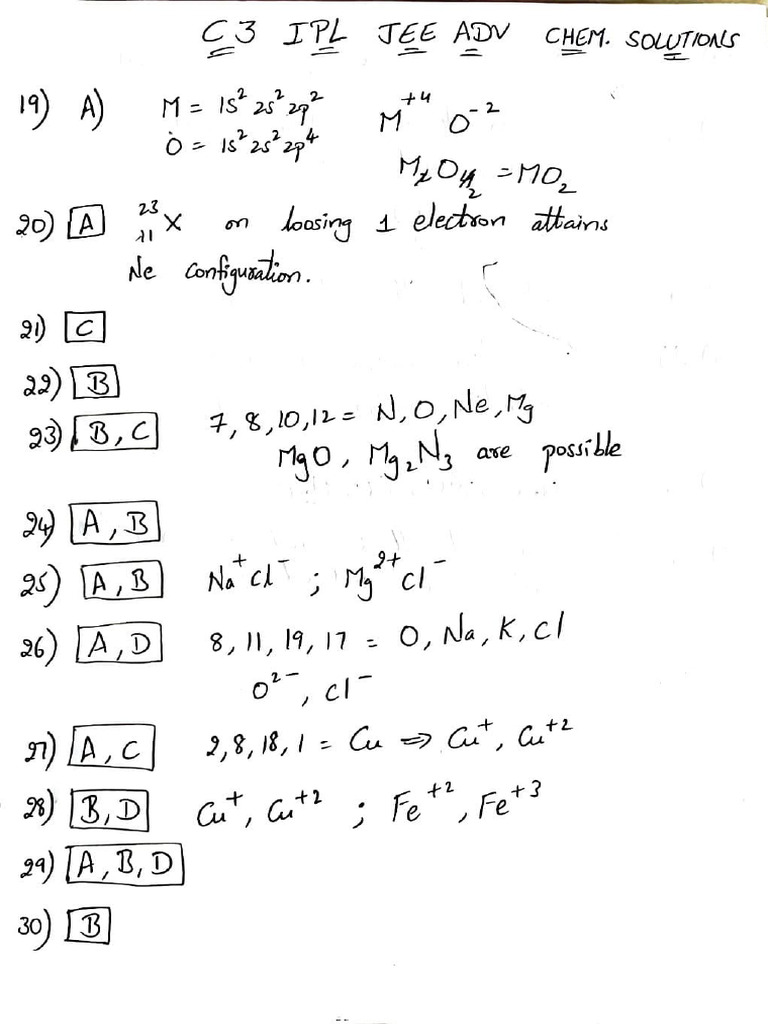 C3 IPL JEE ADV CHEM. SOLUTIONS
19) A) M = 1s² 2s² 2p² M⁺⁴ O⁻²
O = 1s² 2s² 2p⁴ M₂O₄₂ = MO₂
20) A ²³₁₁X on loosing 1 electron attains
Ne configuration.
21) C
22) B
23) B, C 7, 8, 10, 12 = N, O, Ne, Mg
MgO, Mg₂N₃ are possible
24) A, B
25) A, B Na⁺Cl⁻ ; Mg²⁺Cl⁻
26) A, D 8, 11, 19, 17 = O, Na, K, Cl
O²⁻, Cl⁻
27) A, C 2, 8, 18, 1 = Cu ⇒ Cu⁺, Cu⁺²
28) B, D Cu⁺, Cu⁺² ; Fe⁺², Fe⁺³
29) A, B, D
30) B